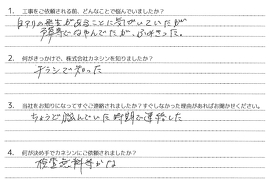 1. 工事をご依頼される前、どんなことで悩んでいましたか？
白アリの発生があることに気がついていたが
予算でなやんでたが、ふみきった。
2. 何がきっかけで、株式会社カネシンを知りましたか？
チラシで知った
3. 当社をお知りになってすぐご連絡されましたか？すぐしなかった理由があればお聞かせください。
ちょうど悩んでいた時期で連絡した
4. 何が決め手でカネシンにご依頼されましたか？
検査無料等かな